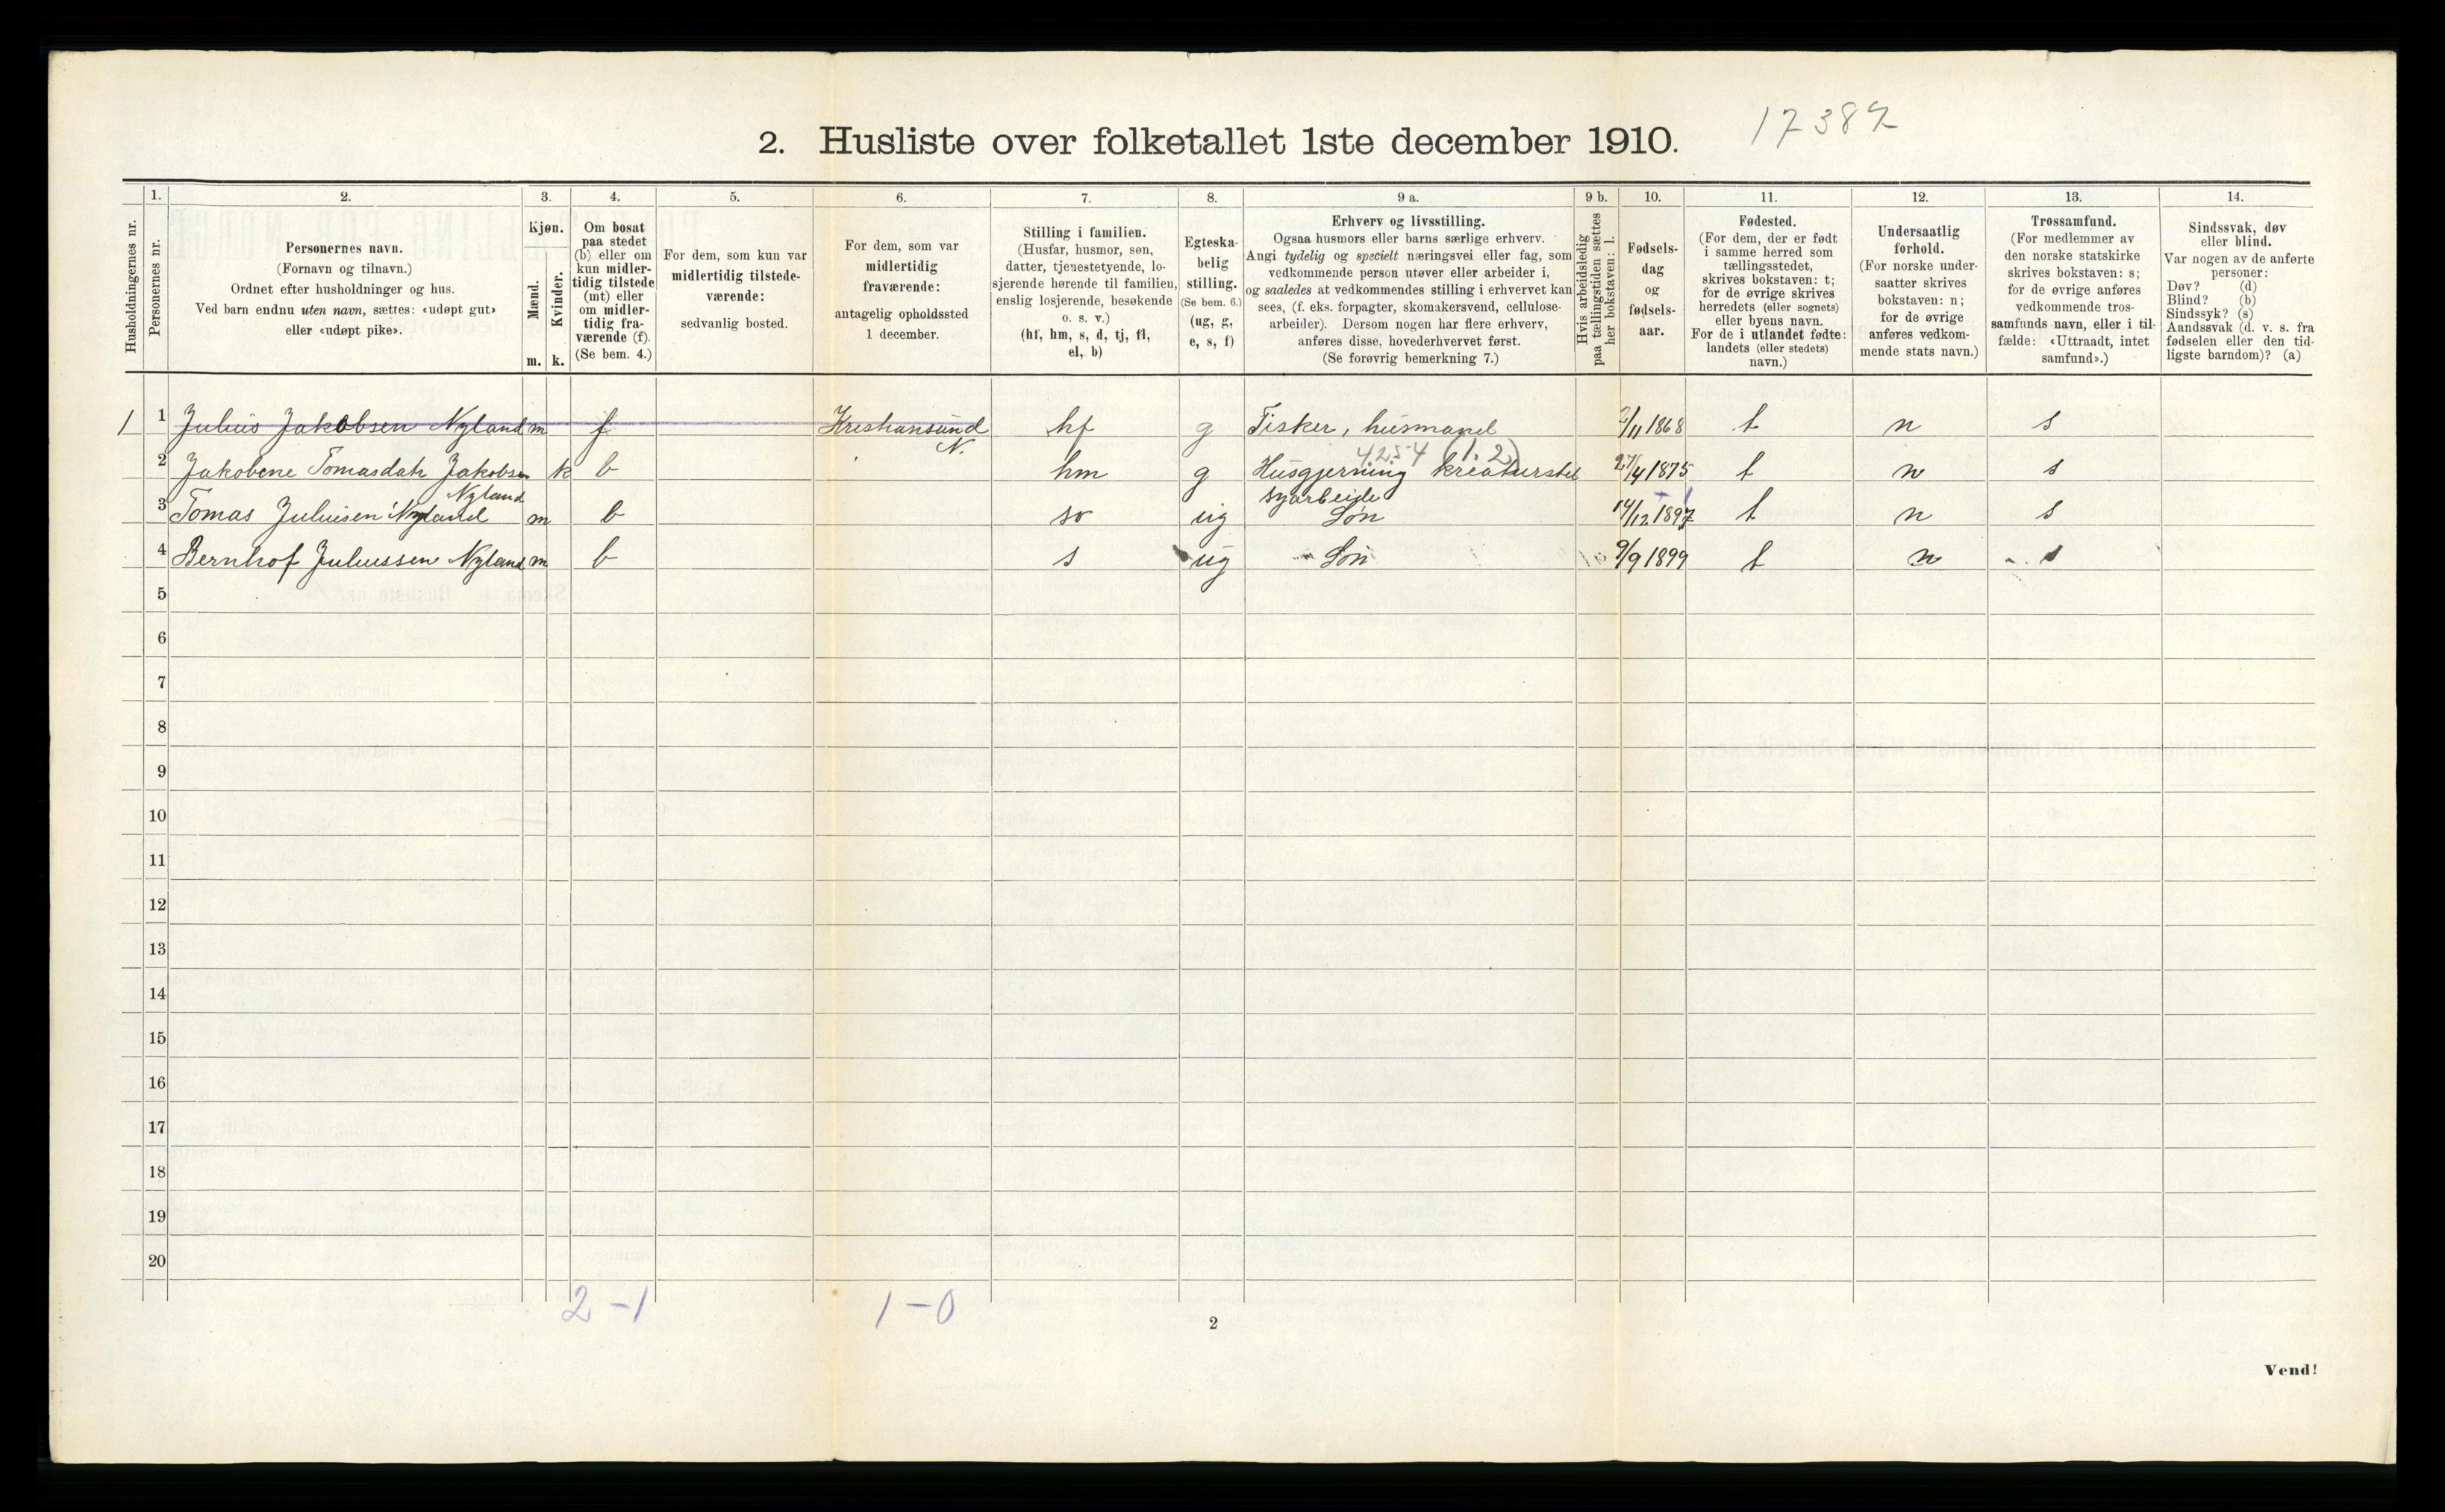 17387
2. Husliste over folketallet 1ste december 1910.
Husholdningernes nr.
1.
Personernes nr.
2.
Personernes navn.
(Fornavn og tilnavn.)
Ordnet efter husholdninger og hus.
Ved barn endnu uten navn, sættes: «udøpt gut»
eller «udøpt pike».
3.
Kjøn.
Mænd.
m.
Kvinder.
k.
4.
Om bosat
paa stedet
(b) eller om
kun midler-
tidig tilstede
(mt) eller
om midler-
tidig fra-
værende (f).
(Se bem. 4.)
5.
For dem, som kun var
midlertidig tilstede-
værende:
sedvanlig bosted.
6.
For dem, som var
midlertidig
fraværende:
antagelig opholdssted
1 december.
7.
Stilling i familien.
(Husfar, husmor, søn,
datter, tjenestetyende, lo-
sjerende hørende til familien,
enslig losjerende, besøkende
o. s. v.)
(hf, hm, s, d, tj, fl,
el, b)
8.
Egteska-
belig
stilling.
(Se bem. 6.)
(ug, g,
e, s, f)
9 a.
Erhverv og livsstilling.
Ogsaa husmors eller barns særlige erhverv.
Angi tydelig og specielt næringsvei eller fag, som
vedkommende person utøver eller arbeider i,
og saaledes at vedkommendes stilling i erhvervet kan
sees, (f. eks. forpagter, skomakersvend, cellulose-
arbeider). Dersom nogen har flere erhverv,
anføres disse, hovederhvervet først.
(Se forøvrig bemerkning 7.)
9 b.
Hvis arbeidsledig
paa tællingstiden sættes
her bokstaven: l.
10.
Fødsels-
dag
og
fødsels-
aar.
11.
Fødested.
(For dem, der er født
i samme herred som
tællingsstedet,
skrives bokstaven: t;
for de øvrige skrives
herredets (eller sognets)
eller byens navn.
For de i utlandet fødte:
landets (eller stedets)
navn.)
12.
Undersaatlig
forhold.
(For norske under-
saatter skrives
bokstaven: n;
for de øvrige
anføres vedkom-
mende stats navn.)
13.
Trossamfund.
(For medlemmer av
den norske statskirke
skrives bokstaven: s;
for de øvrige anføres
vedkommende tros-
samfunds navn, eller i til-
fælde: «Uttraadt, intet
samfund».)
14.
Sindssvak, døv
eller blind.
Var nogen av de anførte
personer:
Døv? (d)
Blind? (b)
Sindssyk? (s)
Aandssvak (d. v. s. fra
fødselen eller den tid-
ligste barndom)? (a)
1 1 Julius Jakobsen Nyland m f Kristiansund N. hf g Fisker, husmand /11 1868 t n s
4254 (1.2)
2 Jakobene Tomasdatr Jakobsen Nyland k b hm g Husgjerning kreaturstel syarbeide 27/4 1875 t n s
3 Tomas Juliusen Nyland m b so ug Søn 14/12 1897 t n s
4 Bernhof Juliussen Nyland m b s ug Søn 9/9 1899 t n s
5
6
7
8
9
10
11
12
13
14
15
16
17
18
19
20
2-1 1-0
2
Vend!